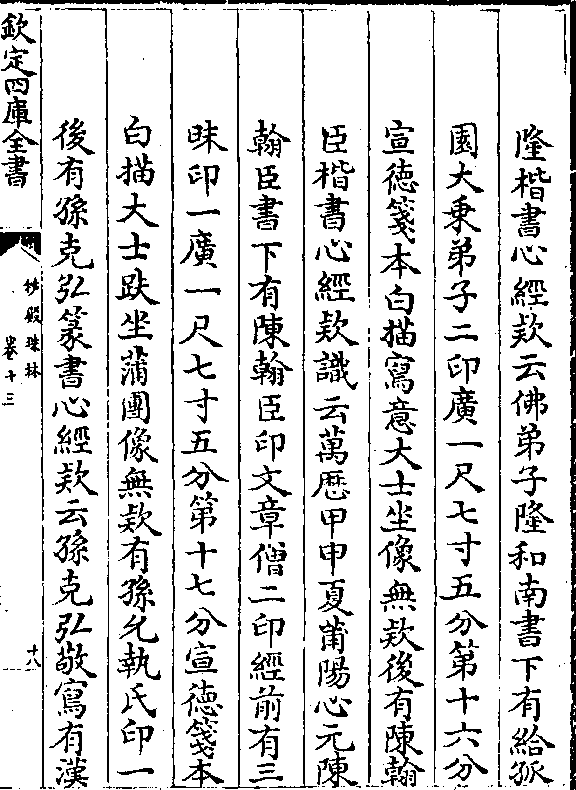 隆楷書心經欵云佛弟子隆和南書下有給孤
園大乗弟子二印廣一尺七寸五分第十六分
宣徳箋本白描寫意大士坐像無欵後有陳翰
臣楷書心經欵識云萬厯甲申夏莆陽心元陳
翰臣書下有陳翰臣印文章僧二印經前有三
昧印一廣一尺七寸五分第十七分宣徳箋本
白描大士趺坐蒲團像無欵有孫允執氏印一
後有孫克弘篆書心經欵云孫克弘敬寫有漢
欽定四庫全書
秘殿珠林
卷十三
十八